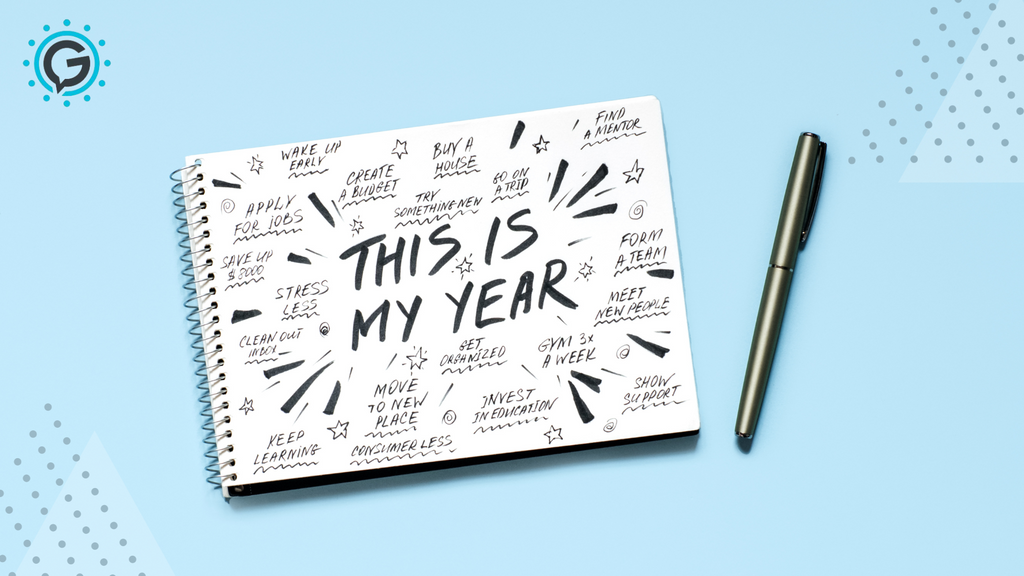 G
WAKE UP
EARLY
CREATE
A BUDGET
BUY A
HOUSE
FIND
A MENTOR
GO ON
A TRIP
TRY
SOMETHING NEW
APPLY
FOR JOBS
THIS IS
MY YEAR
SAVE UP
FORM
A TEAM
STRESS
LESS
MEET
NEW PEOPLE
CLEAN OUT
INBOX
GET
ORGANIZED
GYM 3x
A WEEK
MOVE
TO NEW
PLACE
INVEST
IN EDUCATION
SHOW
SUPPORT
KEEP
LEARNING
CONSUMER LESS